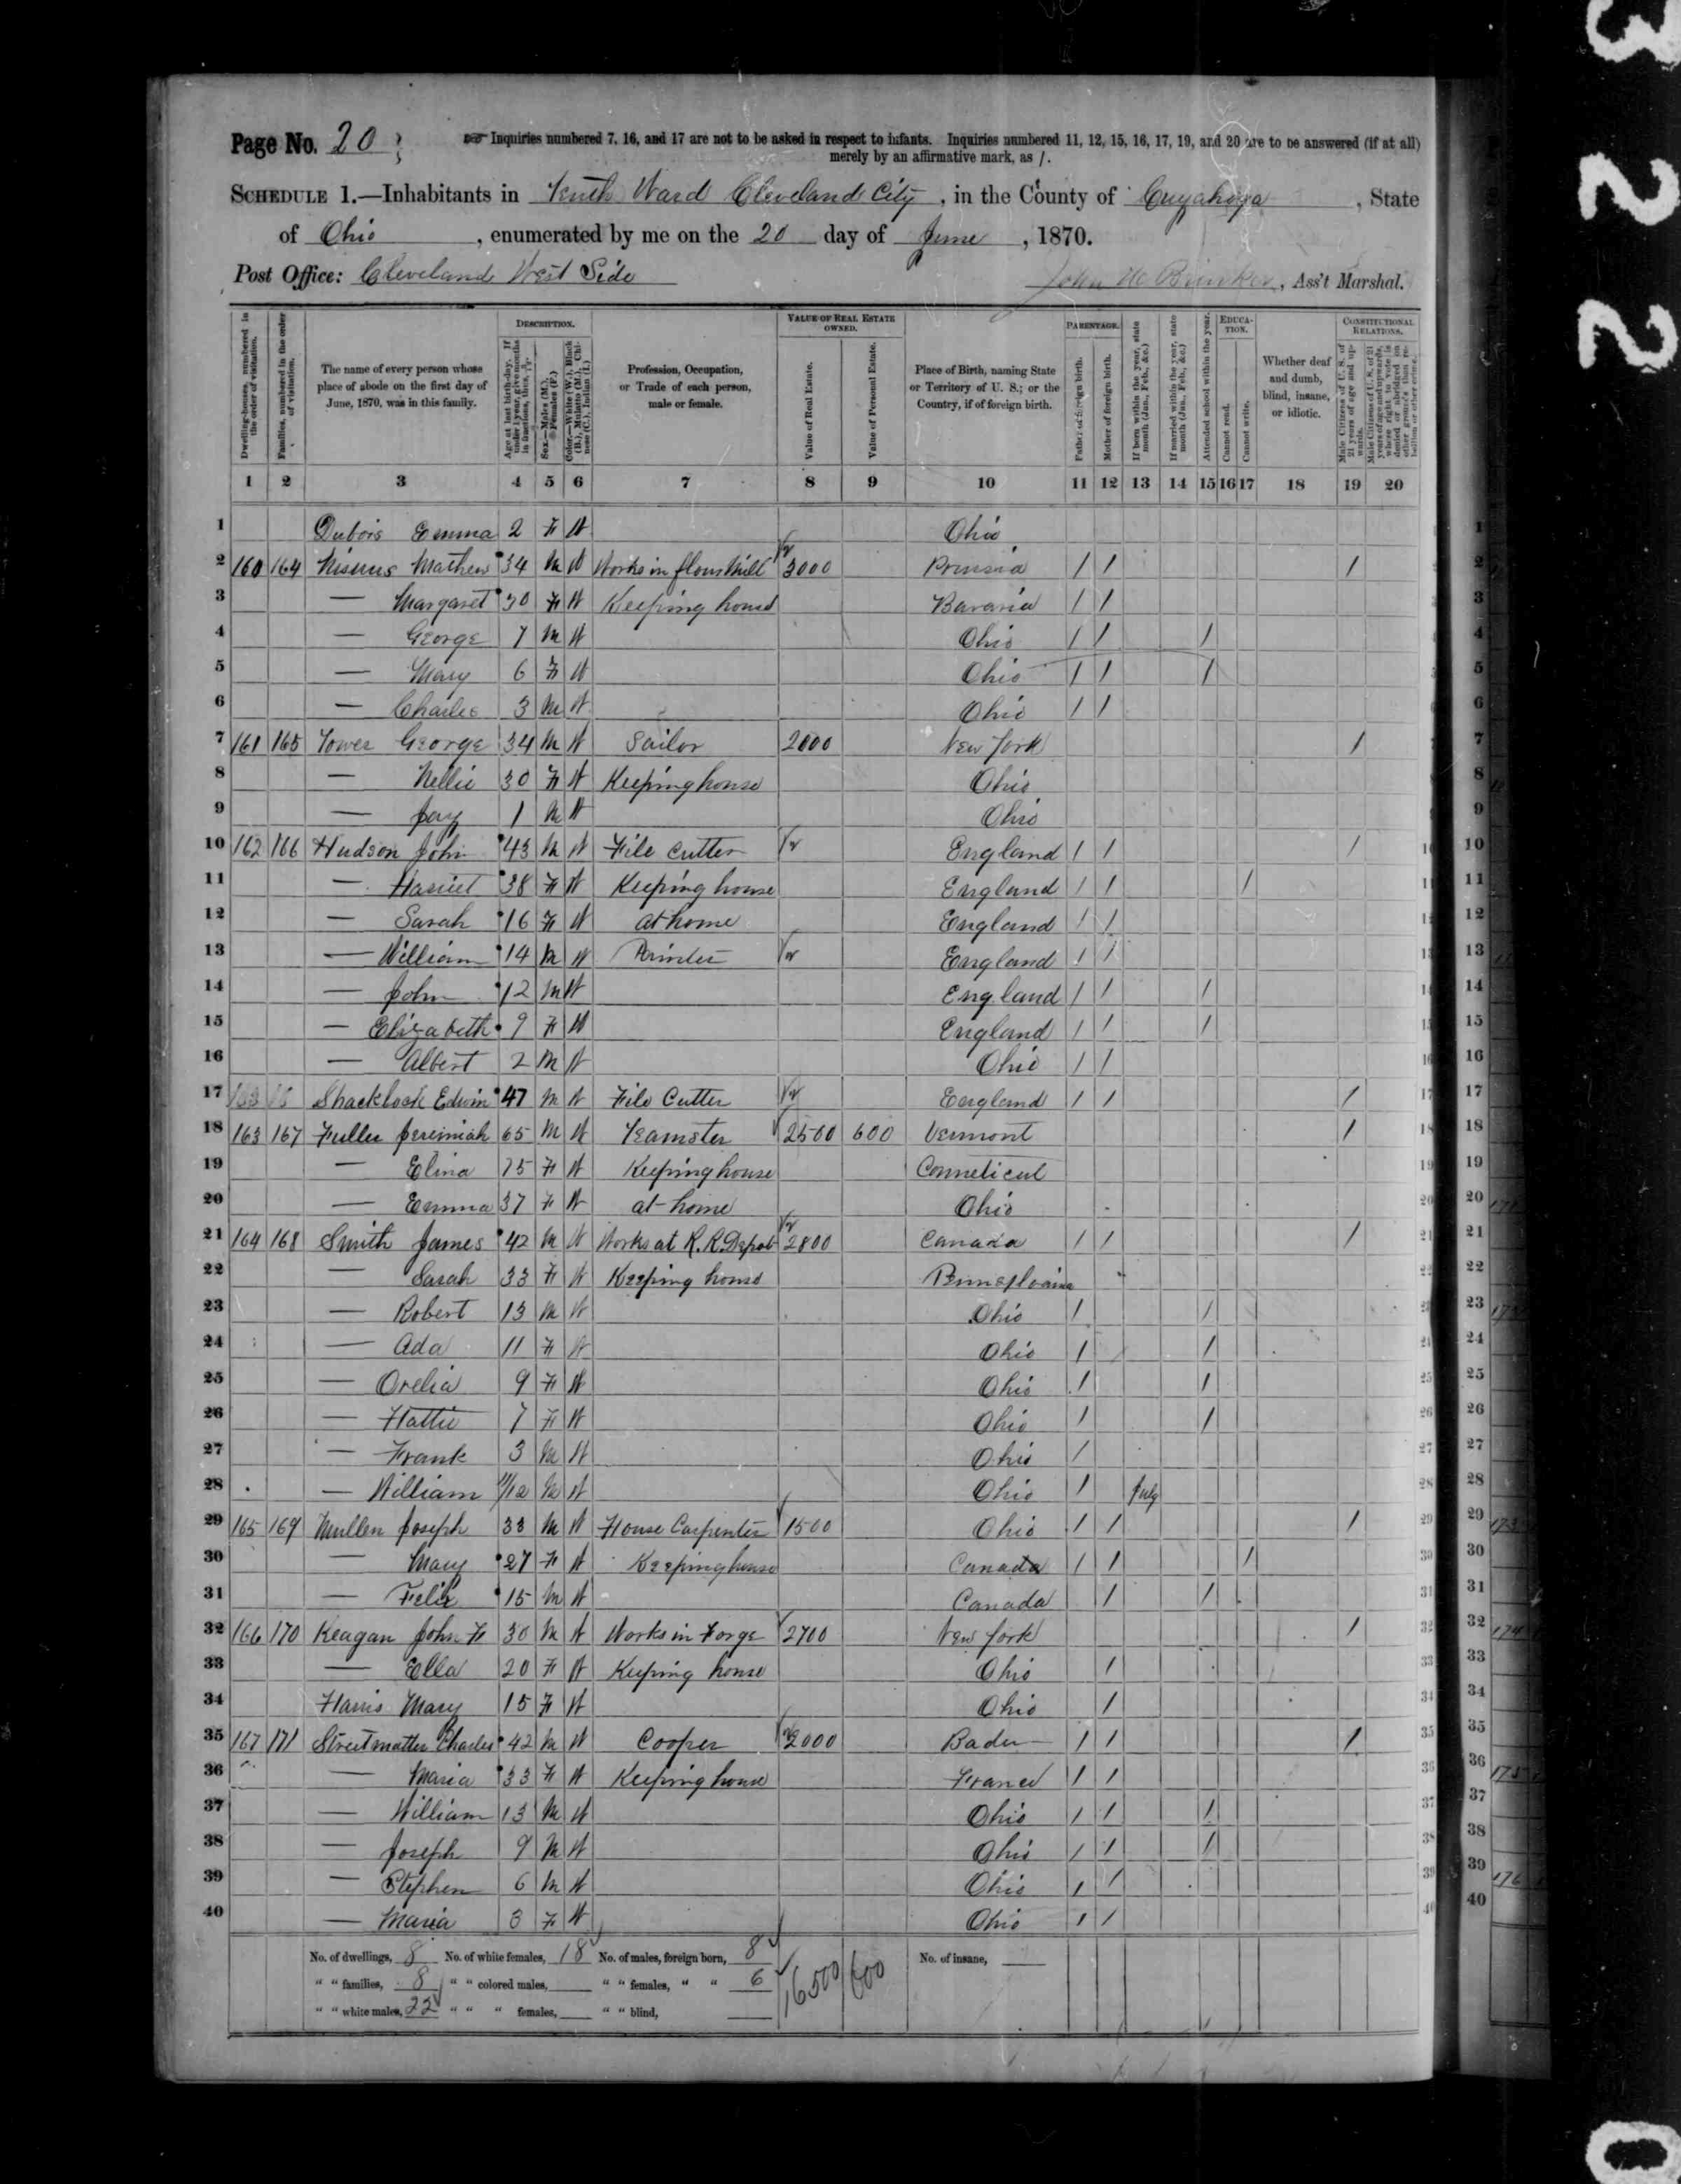 Page No. 20
Inquiries numbered 7, 16, and 17 are not to be asked in respect to infants. Inquiries numbered 11, 12, 15, 16, 17, 19, and 20 are to be answered (if at all)
merely by an affirmative mark, as /.
SCHEDULE 1.—Inhabitants in Tenth Ward Cleveland City, in the County of Cuyahoga, State
of Ohio, enumerated by me on the 20 day of June, 1870.
Post Office: Cleveland West Side
John M Brinker, Ass't Marshal.
Dwelling-houses, numbered in the order of visitation.
Families, numbered in the order of visitation.
The name of every person whose place of abode on the first day of June, 1870, was in this family.
DESCRIPTION.
Age at last birth-day. If under 1 year, give months in fractions, thus, 3/12.
Sex.—Males (M.), Females (F.)
Color.—White (W.), Black (B.), Mulatto (M.), Chinese (C.), Indian (I.)
Profession, Occupation, or Trade of each person, male or female.
VALUE OF REAL ESTATE OWNED.
Value of Real Estate.
Value of Personal Estate.
Place of Birth, naming State or Territory of U. S.; or the Country, if of foreign birth.
PARENTAGE.
Father of foreign birth.
Mother of foreign birth.
If born within the year, state month (Jan., Feb., &c.)
If married within the year, state month (Jan., Feb., &c.)
Attended school within the year.
EDUCATION.
Cannot read.
Cannot write.
Whether deaf and dumb, blind, insane, or idiotic.
CONSTITUTIONAL RELATIONS.
Male Citizens of U. S. of 21 years of age and upwards.
Male Citizens of U. S. of 21 years of age and upwards, where right to vote is denied or abridged on other grounds than rebellion or other crime.
1 2 3 4 5 6 7 8 9 10 11 12 13 14 15 16 17 18 19 20
1 Dubois Emma 2 F W Ohio
2 160 164 Mathew 34 M W Works in flour Mill 3000 Prussia / / /
3 — Margaret 30 F W Keeping house Bavaria / /
4 — George 7 M W Ohio / / /
5 — Mary 6 F W Ohio / / /
6 — Charles 3 M W Ohio / /
7 161 165 Tower George 34 M W Sailor 2000 New York /
8 — Nellie 30 F W Keeping house Ohio
9 — Jay 1 M W Ohio
10 162 166 Hudson John 43 M W File Cutter England / / /
11 — Harriet 38 F W Keeping house England / / /
12 — Sarah 16 F W at home England / /
13 — William 14 M W Printer England / /
14 — John 12 M W England / / /
15 — Elizabeth 9 F W England / / /
16 — Albert 2 M W Ohio / /
17 Shacklock Edwin 47 M W File Cutter England / / /
18 163 167 Fuller Jeremiah 65 M W Teamster 2500 600 Vermont /
19 — Elina 75 F W Keeping house Conneticut
20 — Emma 37 F W at home Ohio
21 164 168 Smith James 42 M W Works at R. R. Depot 2800 Canada / / /
22 — Sarah 33 F W Keeping house Pennsylvania
23 — Robert 13 M W Ohio / /
24 — Ada 11 F W Ohio / /
25 — Orelia 9 F W Ohio / /
26 — Hattie 7 F W Ohio / /
27 — Frank 3 M W Ohio /
28 — William 11/12 M W Ohio / July
29 165 169 Mullen Joseph 33 M W House Carpenter 1500 Ohio / / /
30 — Mary 27 F W Keeping house Canada / / /
31 — Felix 15 M W Canada / /
32 166 170 Keagan John F 30 M W Works in Forge 2700 New York /
33 — Ella 20 F W Keeping house Ohio /
34 Harris Mary 15 F W Ohio /
35 167 171 Streitmatter Charles 42 M W Cooper 2000 Baden / / /
36 — Maria 33 F W Keeping house France / /
37 — William 13 M W Ohio / / /
38 — Joseph 9 M W Ohio / / /
39 — Stephen 6 M W Ohio / /
40 — Maria 3 F W Ohio / /
No. of dwellings, 8 No. of white females, 18 No. of males, foreign born, 8 16500 600 No. of insane,
" " families, 8 " " colored males, " " females, " " 6
" " white males, 22 " " " females, " " blind,